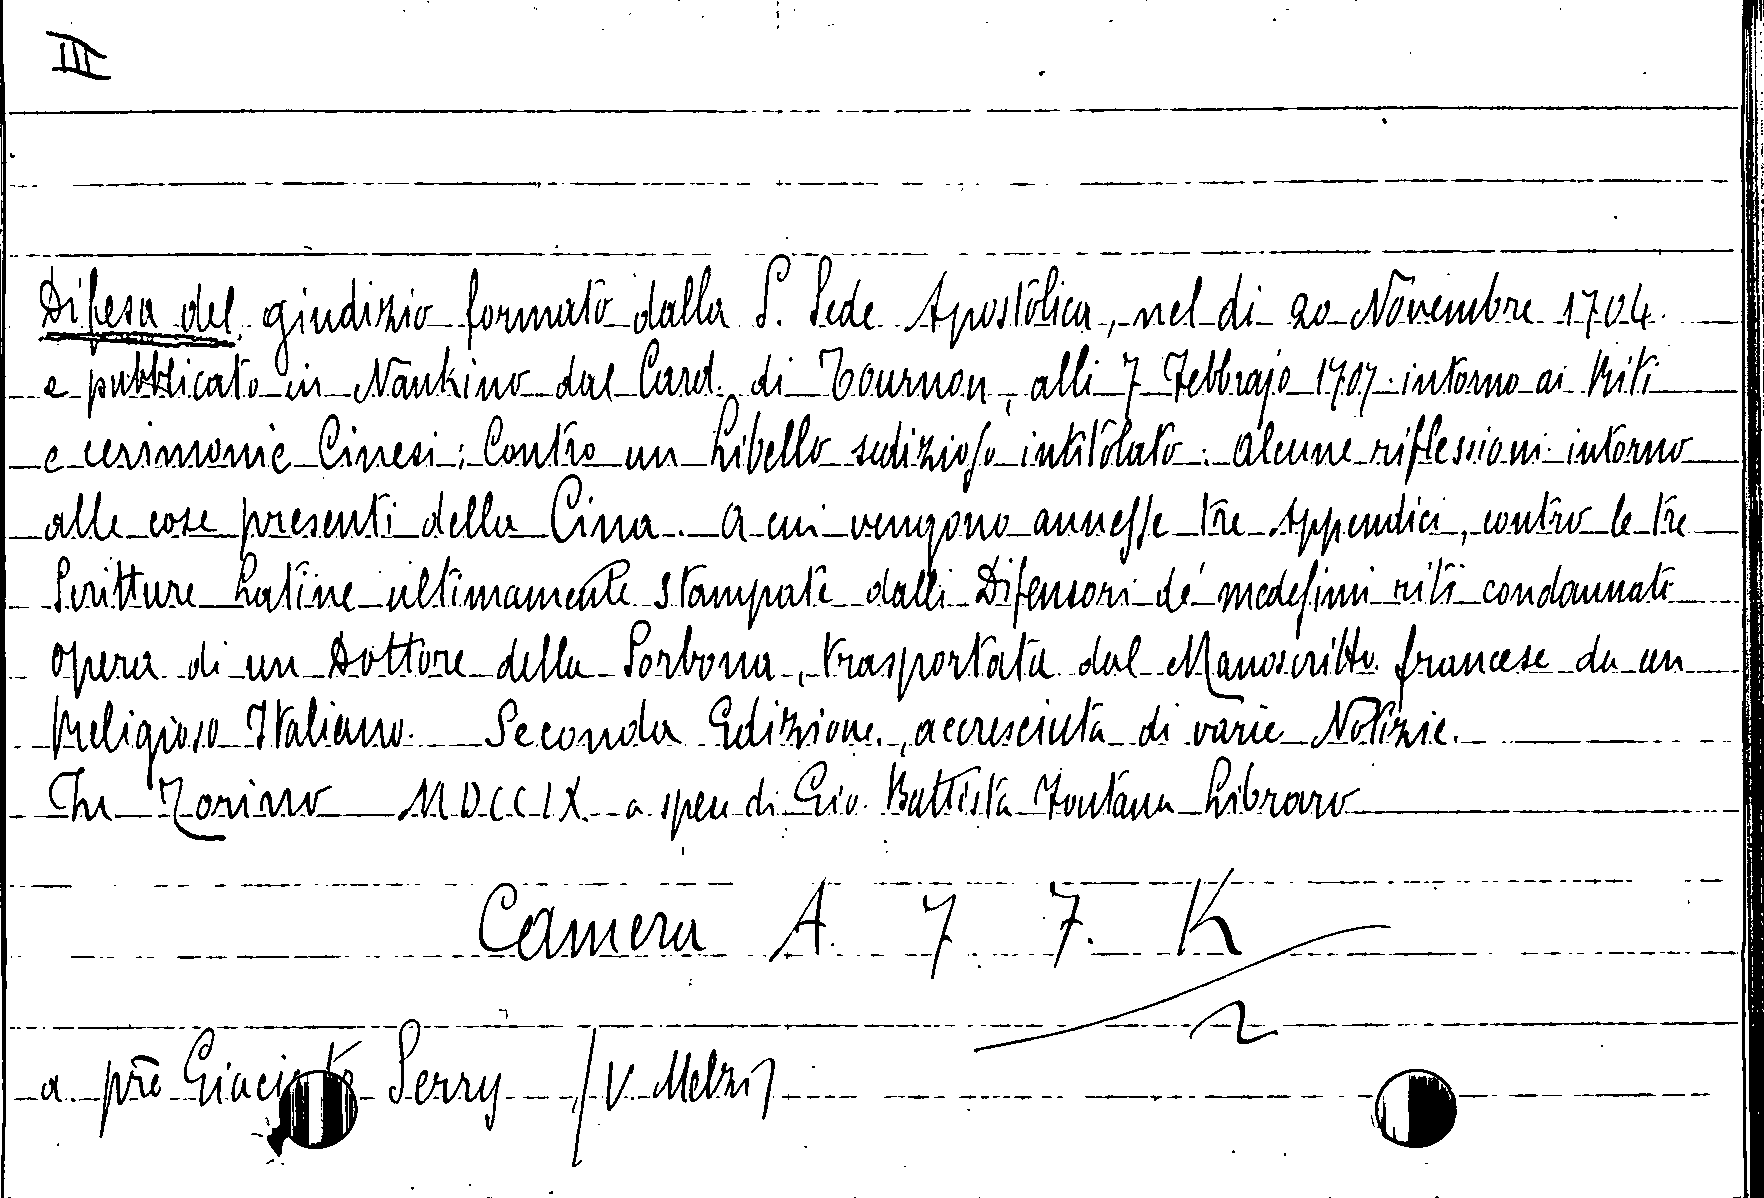 III
Difesa del giudizio formato dalla S. Sede Apostolica, nel di 20 Novembre 1704.
e pubblicato in Nankino dal Card. di Tournon, alli 7 Febbrajo 1707. intorno ai Riti
e cerimonie Cinesi: Contro un Libello sedizioso intitolato: Alcune riflessioni intorno
alle cose presenti della Cina. A cui vengono annesse tre Appendici, contro le tre
Scritture Latine ultimamente stampate dalli Difensori de' medesimi riti condannati
opera di un Dottore della Sorbona, trasportata dal Manoscritto francese da un
Religioso Italiano. Seconda Edizione, accresciuta di varie Notizie.
In Torino MDCCIX a spese di Gio. Battista Fontana Libraro
Camera A. 7 7. K
2
a. prē Giacinto Serry (V. Melzi)